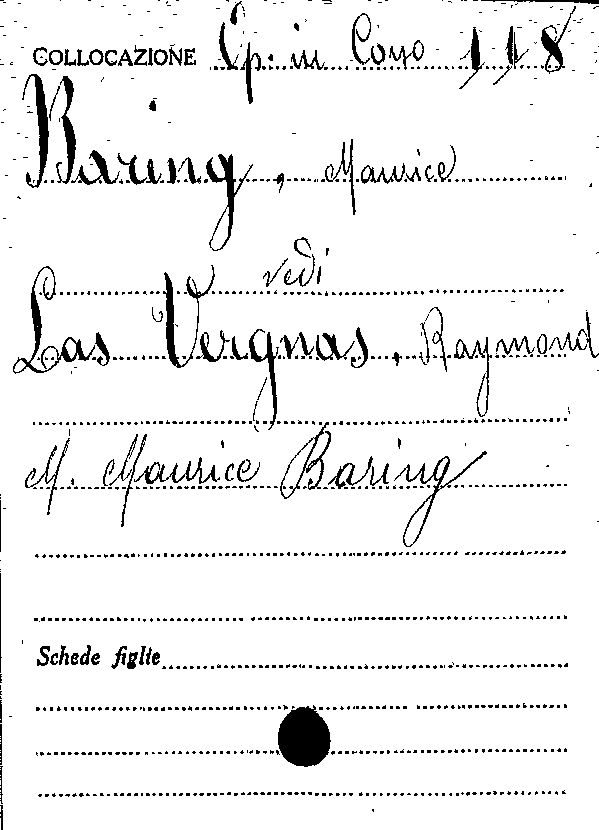 COLLOCAZIONE Op. in Corso 118
Baring, Maurice
vedi
Las Vergnas, Raymond
M. Maurice Baring
Schede figlie